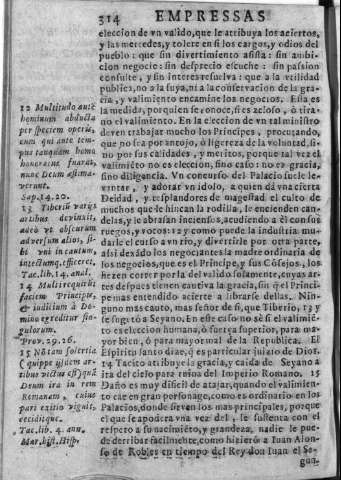 314 EMPRESSAS
eleccion de vn valido, que le atribuya los aciertos,
y las mercedes, y tolere en si los cargos, y odios del
pueblo: que sin divertimiento assista: sin ambi-
cion negocie: sin desprecio escuche: sin passion
consulte, y sin interes resuelva: que a la vtilidad
publica, no a la suya, ni a la conservacion de la gra-
cia, y valimiento encamine los negocios. Esta es
la medida, por quien se conoce, si es zeloso, ò tira-
no el valimiento. En la eleccion de vn tal ministro
deven trabajar mucho los Principes, procurando,
que no sea por antojo, ò ligereza de la voluntad, si-
no por sus calidades, y meritos, porque tal vez el
valimiẽto no es eleccion, sino caso: no es gracia,
sino diligencia. Vn concurso del Palacio suele le-
vantar, y adorar vn idolo, a quien dà vna cierta
Deidad, y resplandores de magestad el culto de
muchos que le hincan la rodilla, le encienden can-
delas, y le abrasan inciensos, acudiendo a èl con sus
ruegos, y votos: 12 y como puede la industria mu-
darle el curso a vn rio, y divertirle por otra parte,
assi dexãdo los negociantes la madre ordinaria de
los negocios, que es el Principe, y sus Cõsejos, los
hazen correr por la del valido solamente, cuyas ar-
tes despues tienen cautiva la gracia, sin q̃ el Princi-
pe mas entendido acierte a librarse dellas. Nin-
guno mas cauto, mas señor de si, que Tiberio, 13 y
se sugetò a Seyano. En este caso no sè si el valimiẽ-
to es eleccion humana, ò fuerça superior, para ma-
yor bien, ò para mayor mal de la Republica. El
Espiritu santo dize, q̃ es particular juizio de Dios.
14 Tacito atribuye la gracia, y caida de Seyano a
ira del cielo para ruina del Imperio Romano. 15
Daño es muy dificil de atajar, quando el valimien-
to cae en gran personage, como es ordinario en los
Palacios, donde sirven los mas principales, porque
el que se apodera vna vez del, le sustenta con el
respeto a su nacimiẽto, y grandeza, nadie le pue-
de derribar facilmente, como hizierõ a Iuan Alon-
so de Robles en tiempo del Rey don Iuan el Se-
gun.
12 Multitudo autẽ
hominum abducta
per speciem operis,
eum qui ante tem-
pus tanquam homo
honoratus fuerat,
nunc Deum estima-
verunt.
Sap. 14. 20.
13 Tiberiũ varijs
artibus devinxit,
adeò vt obscurum
adversum alios, si-
bi vni incautum,
intectumq, efficeret.
Tac. lib. 4. anal.
14 Multi requirũt
faciem Principis,
& iudicium à Do-
mino egreditur sin-
gulorum.
Prov. 29. 26.
15 Nõ tam solertia
(quippe ijsdem ar-
tibus victus est) quã
Deum ira in rem
Romanam, cuius
pari exitio viguit,
ceciditque.
Tac. lib. 4. ann.
Mar. hist. Hisp.